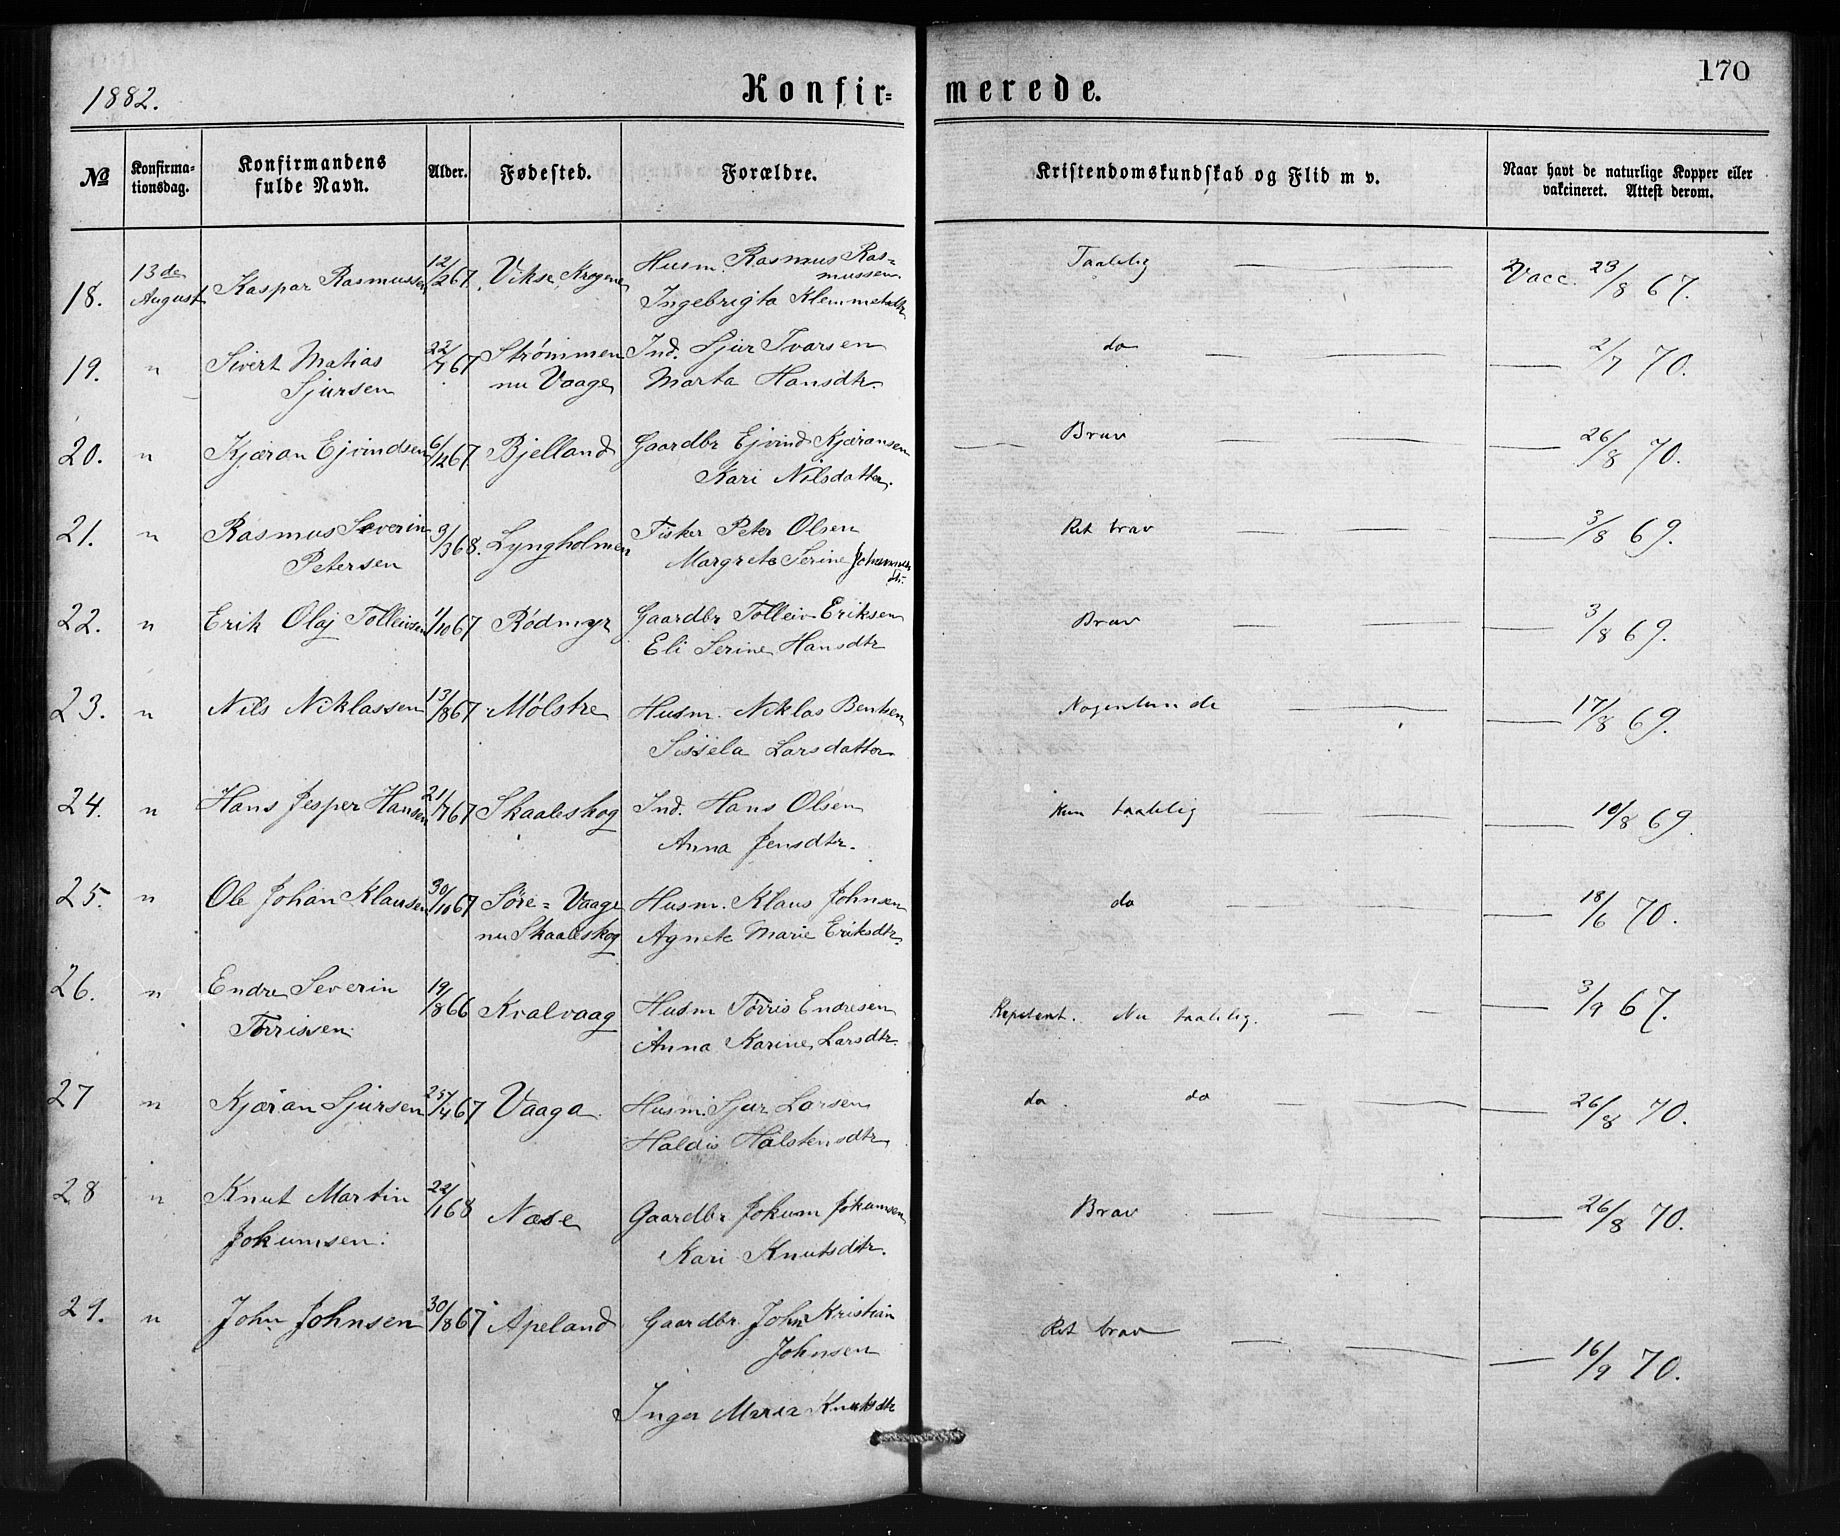 1882.
Konfir=
merede.
170
No
Konfirma-
tionsdag.
Konfirmandens
fulde Navn.
Alder.
Fødested.
Forældre.
Kristendomskundskab og Flid m v.
Naar havt de naturlige Kopper eller
vakcineret. Attest derom.
18. 13de August Kaspar Rasmussen 12/2 67. Vikse Husm. Rasmus Ras=
mussen
Ingebrigta Taalelig Vacc. 23/8 67.
19. " Sivert Matias 22/7 67 Strømmen Ind. Sjur Ivarsen do 2/7 70.
Sjursen nu Vaage Marta Hansdtr.
20. " Kjæran Ejvindsen 6/12 67 Bjelland Gaardbr Ejvind Kjæransen Brav 26/8 70.
Kari Nilsdatter.
21. " Rasmus Severin 3/3 68. Lyngholmen Fisker Peter Olsen Ret brav 3/8 69.
Petersen Margrete Serine
22. " Erik Olaj Tolleivsen 1/10 67 Rødmyr Gaardbr Tolleiv Eriksen Brav 3/8 69.
Eli Serine Hansdtr
23. " Nils Niklassen 13/8 67 Mølstre Husm. Niklas Bentsen Nogenlunde 17/8 69.
Sissela Larsdatter
24. " Hans Jesper Hansen 21/7 67 Skaaleskog Ind. Hans Olsen Kun taalelig 10/8 69.
Anna Jensdtr.
25. " Ole Johan Klausen 30/10 67 Søre=Vaage Husm. Klaus Johnsen do 18/6 70.
nu Skaaleskog Agnete Marie Eriksdtr.
26. " Endre Severin 19/8 66 Kvalvaag Husm Tørris Endresen Repetent. Nu taalelig. 3/9 67.
Tørrissen. Anna Karine Larsdtr.
27 " Kjæran Sjursen 25/4 67 Vaaga Husm. Sjur Larsen do. do 26/8 70.
Haldis Halstensdtr
28 " Knut Martin 22/1 68 Næse Gaardbr Jokum Jokumsen Brav 26/8 70.
Jokumsen. Kari Knutsdtr.
29. " John Johnsen 30/8 67 Apeland Gaardbr. John Kristian Ret brav 16/9 70.
Johnsen
Inger Maria Knutsdtr